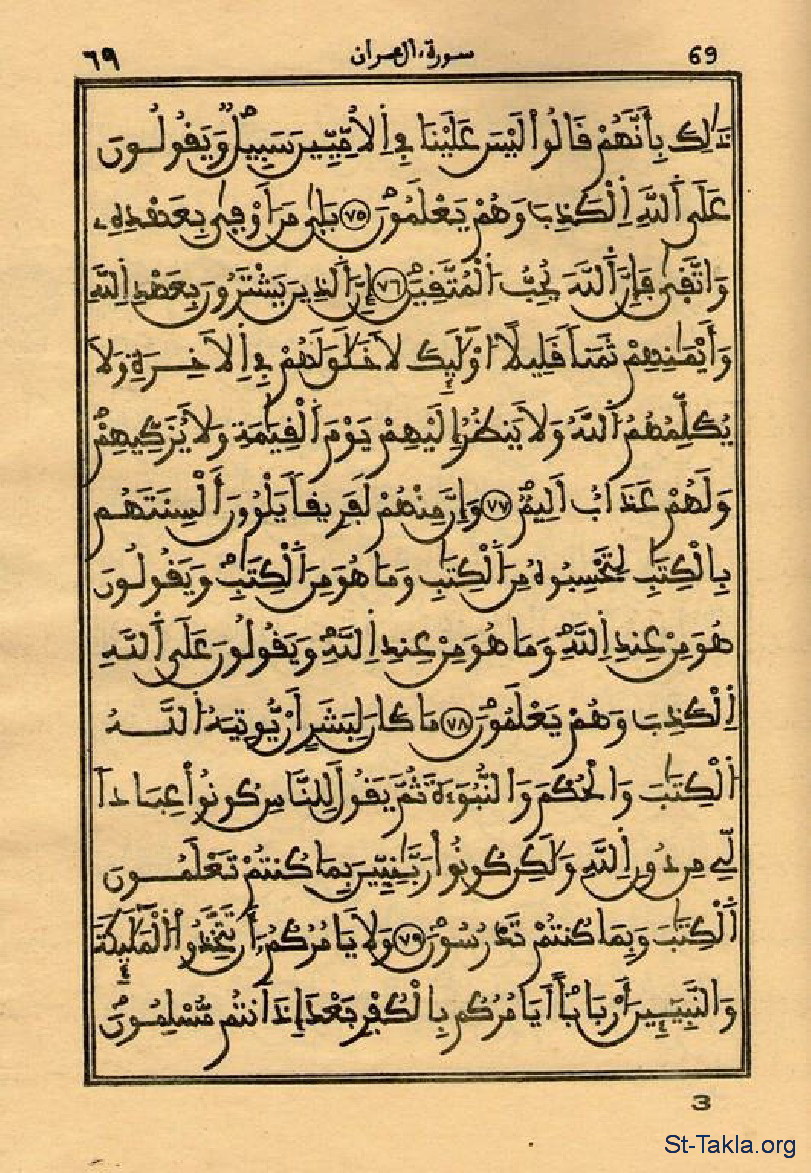 ٦٩ سورة ءال عمران 69
ذَٰلِكَ بِأَنَّهُمْ قَالُوا۟ لَيْسَ عَلَيْنَا فِے اِ۬لُامِّيِّـۧنَ سَبِيلٌ وَيَقُولُونَ
عَلَي اَ۬للَّهِ اِ۬لْكَذِبَ وَهُمْ يَعْلَمُونَ ٧٥ بَلٰي مَنَ اَوْفٰي بِعَهْدِهِۦ
وَاتَّقٰي فَإِنَّ اَ۬للَّهَ يُحِبُّ اُ۬لْمُتَّقِينَ ٧٦ إِنَّ اَ۬لذِينَ يَشْتَرُونَ بِعَهْدِ اِ۬للَّهِ
وَأَيْمَٰنِهِمْ ثَمَناً قَلِيلًا ا۟وْلَٰٓئِكَ لَا خَلَٰقَ لَهُمْ فِے اِ۬لَاخِرَةِ وَلَا
يُكَلِّمُهُمُ اُ۬للَّهُ وَلَا يَنظُرُ إِلَيْهِمْ يَوْمَ اَ۬لْقِيَٰمَةِ وَلَا يُزَكِّيهِمْ
وَلَهُمْ عَذَابٌ اَلِيمٌ ٧٧ وَإِنَّ مِنْهُمْ لَفَرِيقاً يَلْوُۥنَ أَلْسِنَتَهُم
بِالْكِتَٰبِ لِتَحْسِبُوهُ مِنَ اَ۬لْكِتَٰبِ وَمَا هُوَ مِنَ اَ۬لْكِتَٰبِ وَيَقُولُونَ
هُوَ مِنْ عِندِ اِ۬للَّهِ وَمَا هُوَ مِنْ عِندِ اِ۬للَّهِ وَيَقُولُونَ عَلَي اَ۬للَّهِ
اِ۬لْكَذِبَ وَهُمْ يَعْلَمُونَ ٧٨ مَا كَانَ لِبَشَرٍ اَنْ يُّوتِيَهُ اُ۬للَّهُ
اُ۬لْكِتَٰبَ وَالْحُكْمَ وَالنُّبُوٓءَةَ ثُمَّ يَقُولَ لِلنَّاسِ كُونُوا۟ عِبَاداً
لِّے مِن دُونِ اِ۬للَّهِ وَلَٰكِن كُونُوا۟ رَبَّٰنِيِّـۧنَ بِمَا كُنتُمْ تَعْلَمُونَ
اَ۬لْكِتَٰبَ وَبِمَا كُنتُمْ تَدْرُسُونَ ٧٩ وَلَا يَامُرُكُمُۥٓ أَن تَتَّخِذُوا۟ اُ۬لْمَلَٰٓئِكَةَ
وَالنَّبِيٓـِٕۧنَ أَرْبَاباً اَيَامُرُكُم بِالْكُفْرِ بَعْدَ إِذَ اَنتُم مُّسْلِمُونَ
3
St-Takla.org